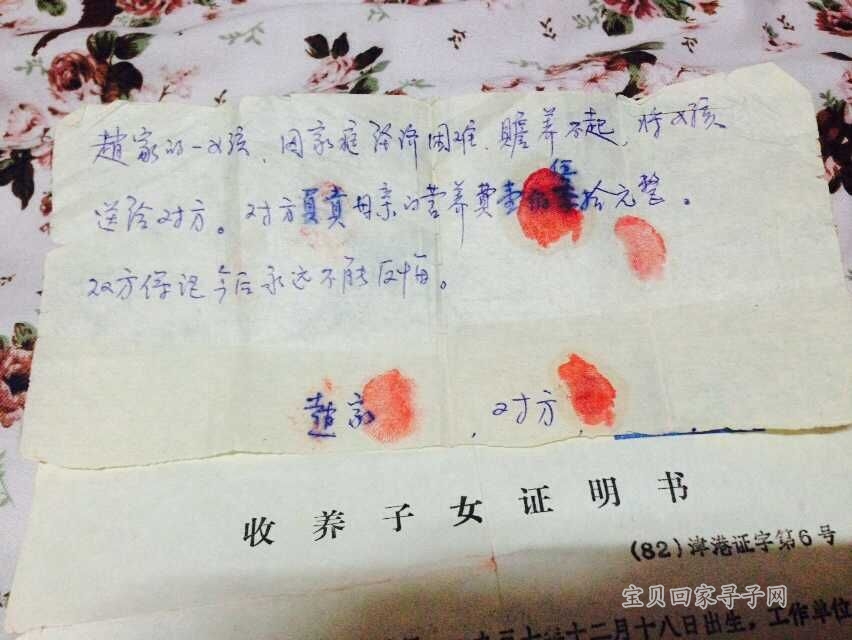 趙家的一女孩、因家庭经济困难、赡养不起，将女孩
送给对方。对方負責母亲的营养费壹佰伍拾元整。
双方保记今后永远不能反悔。
趙家，对方
收养子女证明书
(82)津港证字第6号
十二月十八日出生，工作单位
宝贝回家寻子网